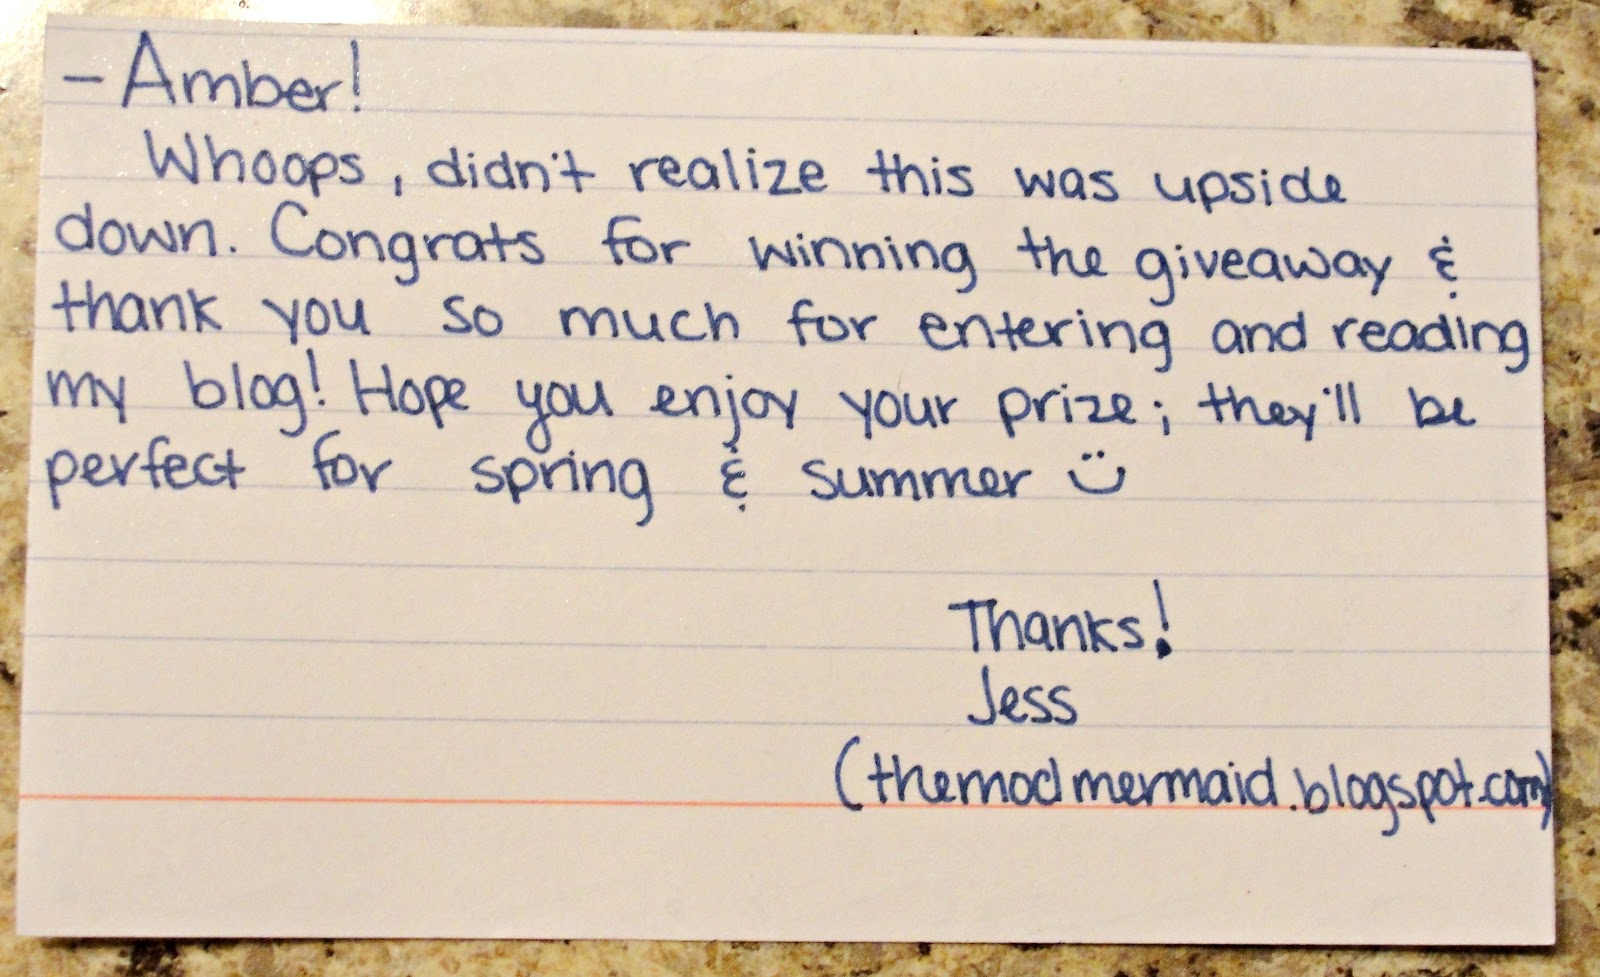 - Amber!
Whoops, didn't realize this was upside
down. Congrats for winning the giveaway &
thank you so much for entering and reading
my blog! Hope you enjoy your prize; they'll be
perfect for spring & summer :)
Thanks!
Jess
(themodmermaid.blogspot.com)